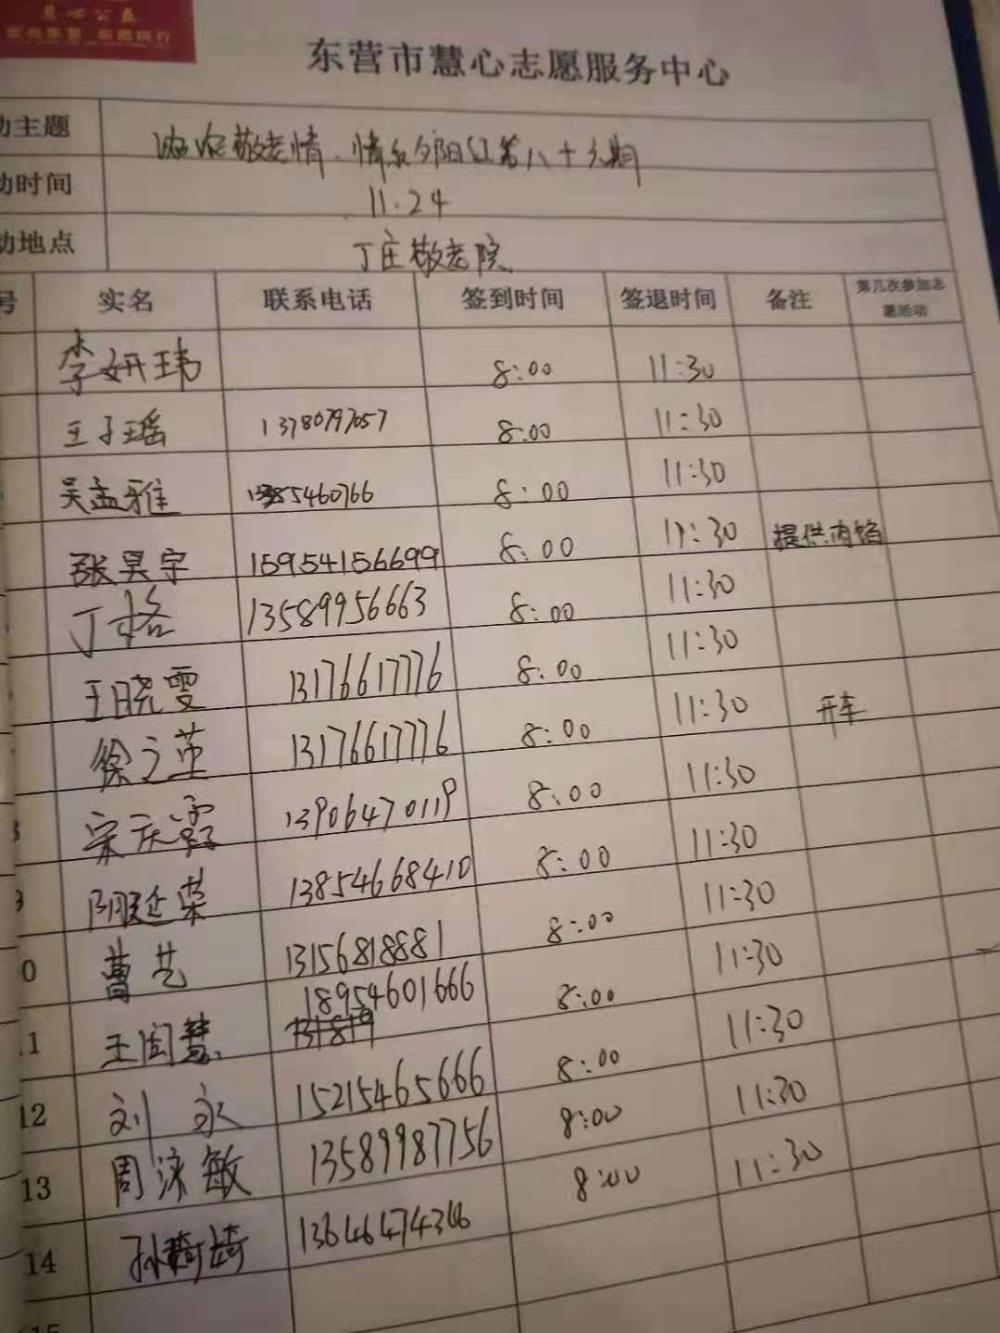 慧心公益
东营市慧心志愿服务中心
动主题 浓浓敬老情．情系夕阳红第八十六期
动时间 11.24
动地点 丁庄敬老院
号 实名 联系电话 签到时间 签退时间 备注 第几次参加志愿活动
李妍玮 8:00 11:30
王子瑶 13780797057 8:00 11:30
吴孟雅 8:00 11:30
张昊宇 15954156699 8:00 11:30 提供肉馅
丁格 13589956663 8:00 11:30
王晓雯 13176617776 8:00 11:30
徐之堇 13176617776 8:00 11:30 开车
宋庆霞 13906470119 8:00 11:30
13854668410 8:00 11:30
0 曹艺 13156818881 8:00 11:30
1 王闰慧 18954601666 8:00 11:30
12 刘永 15215465666 8:00 11:30
13 周泳敏 13589987756 8:00 11:30
14 孙琦琦 8:00 11:30